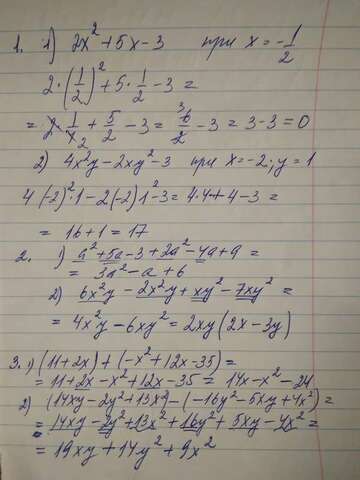 1. 1) 2x² + 5x - 3 при x = -1/2
2·(1/2)² + 5·1/2 - 3 =
= 2·1/4₂ + 5/2 - 3 = 6/2 - 3 = 3 - 3 = 0
2) 4x²y - 2xy² - 3 при x = -2; y = 1
4(-2)²·1 - 2(-2)1² - 3 = 4·4 + 4 - 3 =
= 16 + 1 = 17
2. 1) a² + 5a - 3 + 2a² - 4a + 9 =
= 3a² - a + 6
2) 6x²y - 2x²y + xy² - 7xy² =
= 4x²y - 6xy² = 2xy(2x - 3y)
3. 1) (11 + 2x) + (-x² + 12x - 35) =
= 11 + 2x - x² + 12x - 35 = 14x - x² - 24
2) (14xy - 2y² + 13x²) - (-16y² - 5xy + 4x²) =
= 14xy - 2y² + 13x² + 16y² + 5xy - 4x² =
= 19xy + 14y² + 9x²